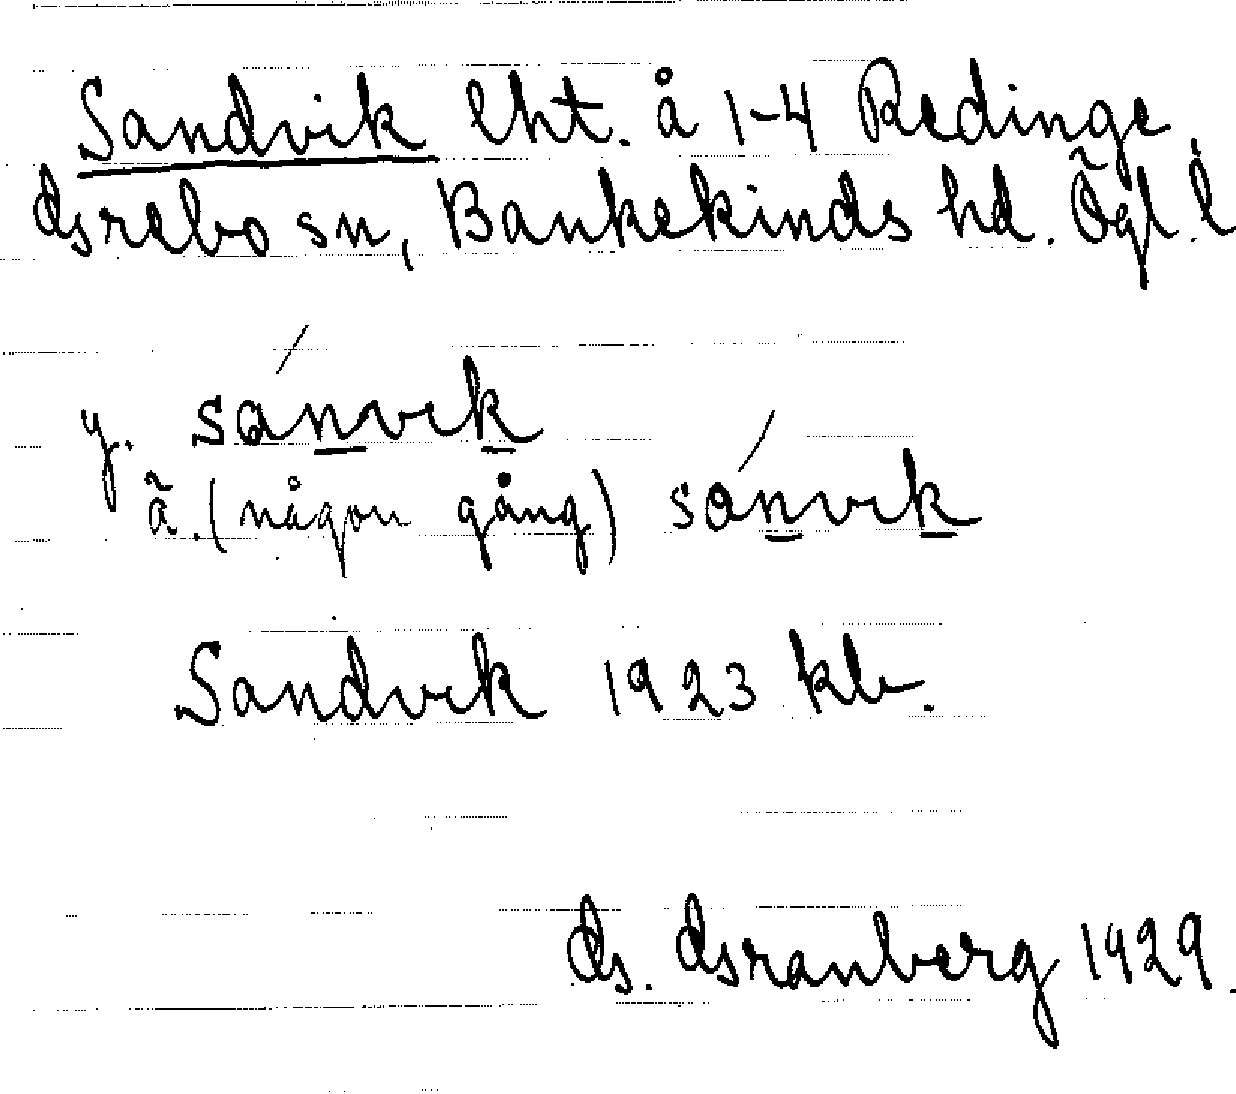 Sandvik lht. å 1-4 Redinge
Grebo sn, Bankekinds hd. Ögl. l
y. sánvik
ä. (någon gång) sánvik
Sandvik 1923 kb.
G. Granberg 1929.